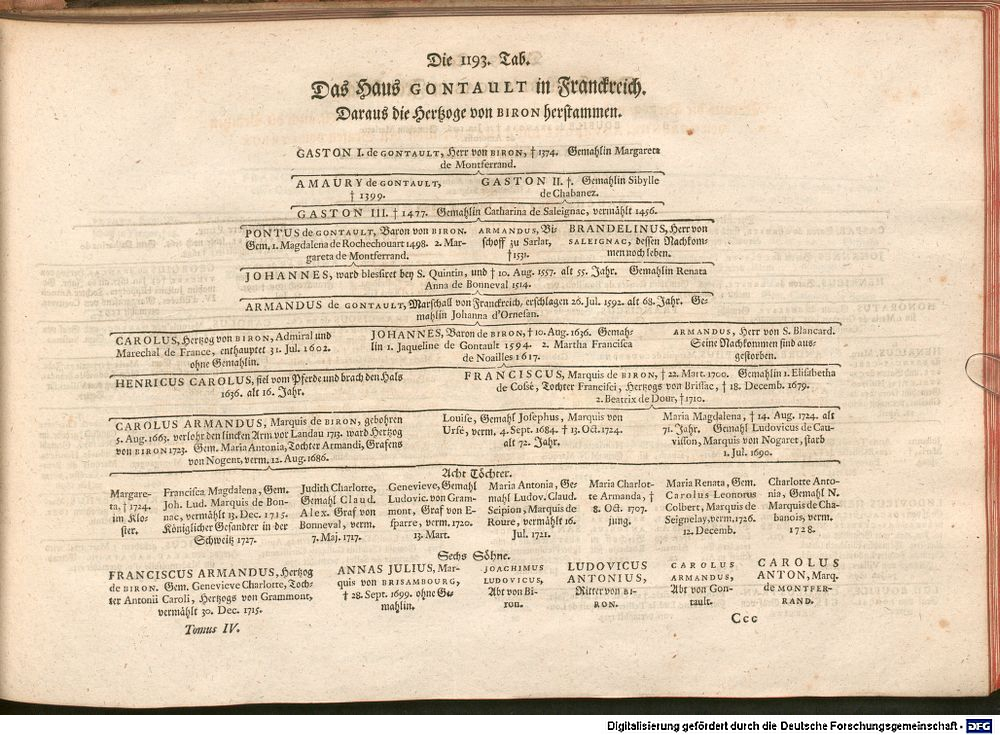 Die 1193. Tab.
Das Haus GONTAULT in Franckreich,
Daraus die Hertzoge von BIRON herstammen.
GASTON I. de GONTAULT, Herr von BIRON, † 1374. Gemahlin Margareta
de Montferrand.
AMAURY de GONTAULT,
† 1399.
GASTON II. †. Gemahlin Sibylle
de Chabanez.
GASTON III. † 1477. Gemahlin Catharina de Saleignac, vermählt 1456.
PONTUS de GONTAULT, Baron von BIRON.
Gem. 1. Magdalena de Rochechouart 1498. 2. Mar-
gareta de Montferrand.
ARMANDUS, Bi-
schoff zu Sarlat,
† 1531.
BRANDELINUS, Herr von
SALEIGNAC, dessen Nachkom-
men noch leben.
JOHANNES, ward blessiret bey S. Quintin, und † 10. Aug. 1557. alt 55. Jahr. Gemahlin Renata
Anna de Bonneval 1514.
ARMANDUS de GONTAULT, Marschall von Franckreich, erschlagen 26. Jul. 1592. alt 68. Jahr. Ge-
mahlin Johanna d'Ornesan.
CAROLUS, Hertzog von BIRON, Admiral und
Marechal de France, enthauptet 31. Jul. 1602.
ohne Gemahlin.
JOHANNES, Baron de BIRON, † 10. Aug. 1636. Gemah-
lin 1. Jaqueline de Gontault 1594. 2. Martha Francisca
de Noailles 1617.
ARMANDUS, Herr von S. Blancard.
Seine Nachkommen sind aus-
gestorben.
HENRICUS CAROLUS, fiel vom Pferde und brach den Hals
1636. alt 16. Jahr.
FRANCISCUS, Marquis de BIRON, † 22. Mart. 1700. Gemahlin 1. Elisabetha
de Cossé, Tochter Francisci, Hertzogs von Brissac, † 18. Decemb. 1679.
2. Beatrix de Dour, † 1710.
CAROLUS ARMANDUS, Marquis de BIRON, gebohren
5. Aug. 1663. verlohr den lincken Arm vor Landau 1713. ward Hertzog
von BIRON 1723. Gem. Maria Antonia, Tochter Armandi, Grafens
von Nogent, verm. 12. Aug. 1686.
Louise, Gemahl Josephus, Marquis von
Urfé, verm. 4. Sept. 1684. † 13. Oct. 1724.
alt 72. Jahr.
Maria Magdalena, † 14. Aug. 1724. alt
71. Jahr. Gemahl Ludovicus de Cau-
visson, Marquis von Nogaret, starb
1. Jul. 1690.
Acht Töchter.
Margare-
ta, † 1724.
im Klo-
ster.
Francisca Magdalena, Gem.
Joh. Lud. Marquis de Bon-
nac, vermählt 13. Dec. 1715.
Königlicher Gesandter in der
Schweitz 1727.
Judith Charlotte,
Gemahl Claud.
Alex. Graf von
Bonneval, verm.
7. Maj. 1717.
Genevieve, Gemahl
Ludovic. von Gram-
mont, Graf von E-
sparre, verm. 1720.
13. Mart.
Maria Antonia, Ge-
mahl Ludov. Claud.
Scipion, Marquis de
Roure, vermählt 16.
Jul. 1721.
Maria Charlot-
te Armanda, †
8. Oct. 1707.
jung.
Maria Renata, Gem.
Carolus Leonorus
Colbert, Marquis de
Seignelay, verm. 1726.
12. Decemb.
Charlotte Anto-
nia, Gemahl N.
Marquis de Cha-
banois, verm.
1728.
Sechs Söhne.
FRANCISCUS ARMANDUS, Hertzog
de BIRON. Gem. Genevieve Charlotte, Toch-
ter Antonii Caroli, Hertzogs von Grammont,
vermählt 30. Dec. 1715.
ANNAS JULIUS, Mar-
quis von BRISAMBOURG,
† 28. Sept. 1699. ohne Ge-
mahlin.
JOACHIMUS
LUDOVICUS,
Abt von Bi-
ron.
LUDOVICUS
ANTONIUS,
Ritter von BI-
RON.
CAROLUS
ARMANDUS,
Abt von Gon-
tault.
CAROLUS
ANTON, Marq.
de MONTFER-
RAND.
Tomus IV.
Ccc
Digitalisierung gefördert durch die Deutsche Forschungsgemeinschaft - DFG